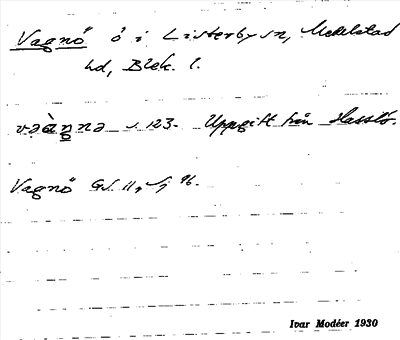 Vagnö ö i Listerby sn, Medelstad
hd, Blek. l.
s. 123. Uppgift från Hasslö.
Vagnö GS. 11, s. 96.
Ivar Modéer 1930